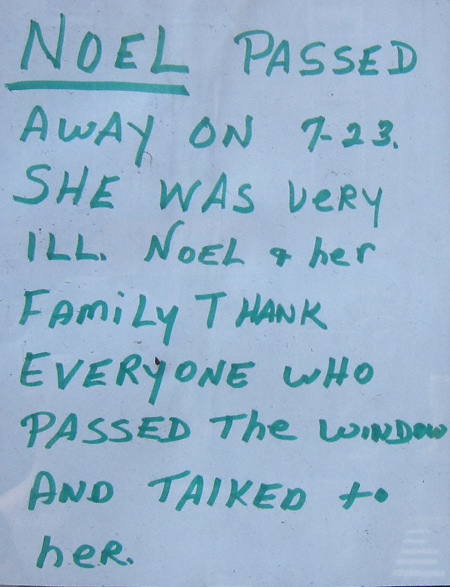 NOEL PASSED
AWAY ON 7-23.
SHE WAS VerY
ILL. NOEL & her
FAMiLY THANK
EVERYONE WHO
PASSED The WINDOW
AND TAlKED to
heR.